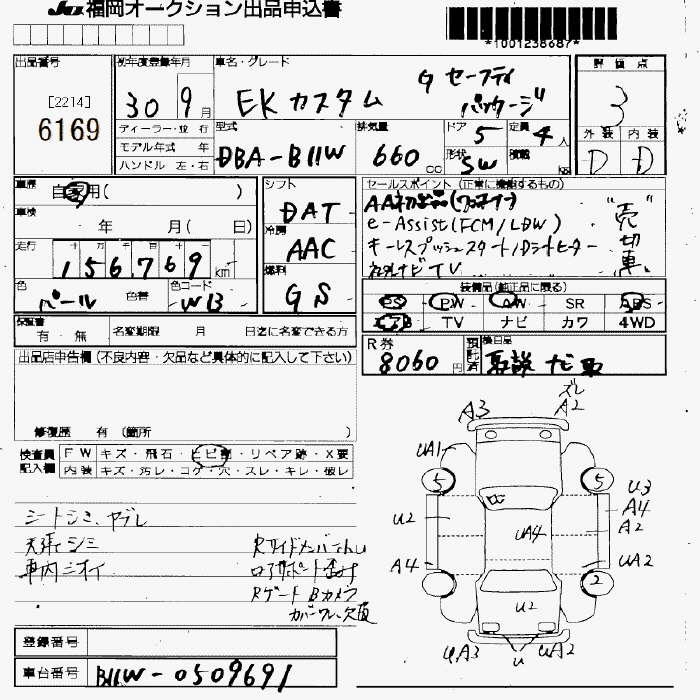 JU福岡オークション出品申込書
*1001238687*
出品番号
[2214]
6169
初年度登録年月
30 9月
ディーラー・並行
モデル年式 年
ハンドル 左・右
車名・グレード
G セーフティ
EKカスタム パッケージ
型式
DBA-B11W
排気量
660cc
ドア 5
定員 4人
形状 SW
積載 kg
評価点
3
外装 内装
D D
車歴
自家用( )
車検
年 月( 日)
走行
156,769km
色
パール
色替
色コード
WB
シフト
DAT
冷房
AAC
燃料
GS
セールスポイント(正常に機能するもの)
AA初出品(ワンオーナー)
e-Assist(FCM/LDW)
キーレスプッシュスタート/Dシートヒーター
社外ナビTV
"売切車"
装備品(純正品に限る)
PS PW AW SR ABS
エアB TV ナビ カワ 4WD
保証書
有・無
名変期限 月 日迄に名変できる方
R券
8060円
預託済
後日品
出品店申告欄(不良内容・欠品など具体的に記入して下さい)
修復歴 有(箇所 )
検査員記入欄
FW キズ・飛石・ヒビ割・リペア跡・X要
内装 キズ・汚レ・コゲ・穴・スレ・キレ・破レ
シートシミ、ヤブレ
天張シミ
車内ニオイ
Rサイドメンバー
ロアサポート
Rゲート Bカメラ
カバーワレ、欠損
A3
ズレ
A2
UA1
5
5
U3
A4
A2
U2
UA4
A4
UA2
2
U2
UA3
U
UA2
登録番号
車台番号
B11W-0509691